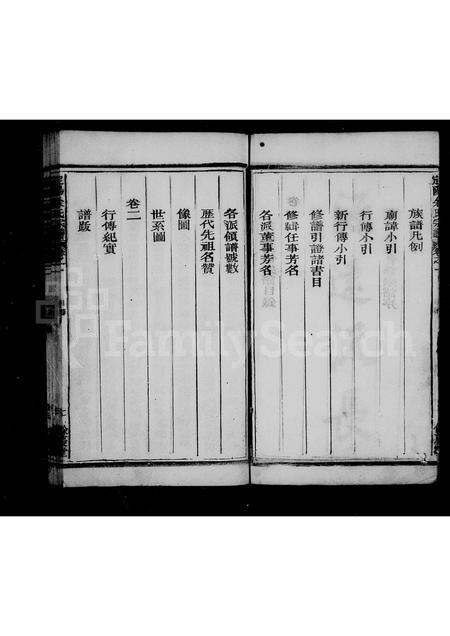 族譜凡例
廟諱小引
行傳小引
新行傳小引
修譜引證諸書目
修輯任事芳名
各派董事芳名
各派領譜號數
歷代先祖名贊
像圖
世系圖
卷二
行傳紀實
譜跋
FamilySearch